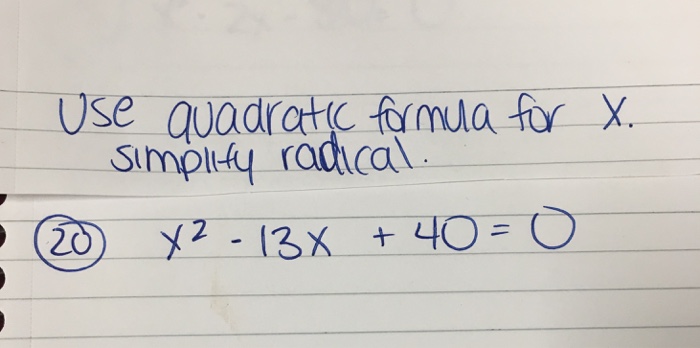 Use quadratic formula for x.
simplify radical.
20 x² - 13x + 40 = 0